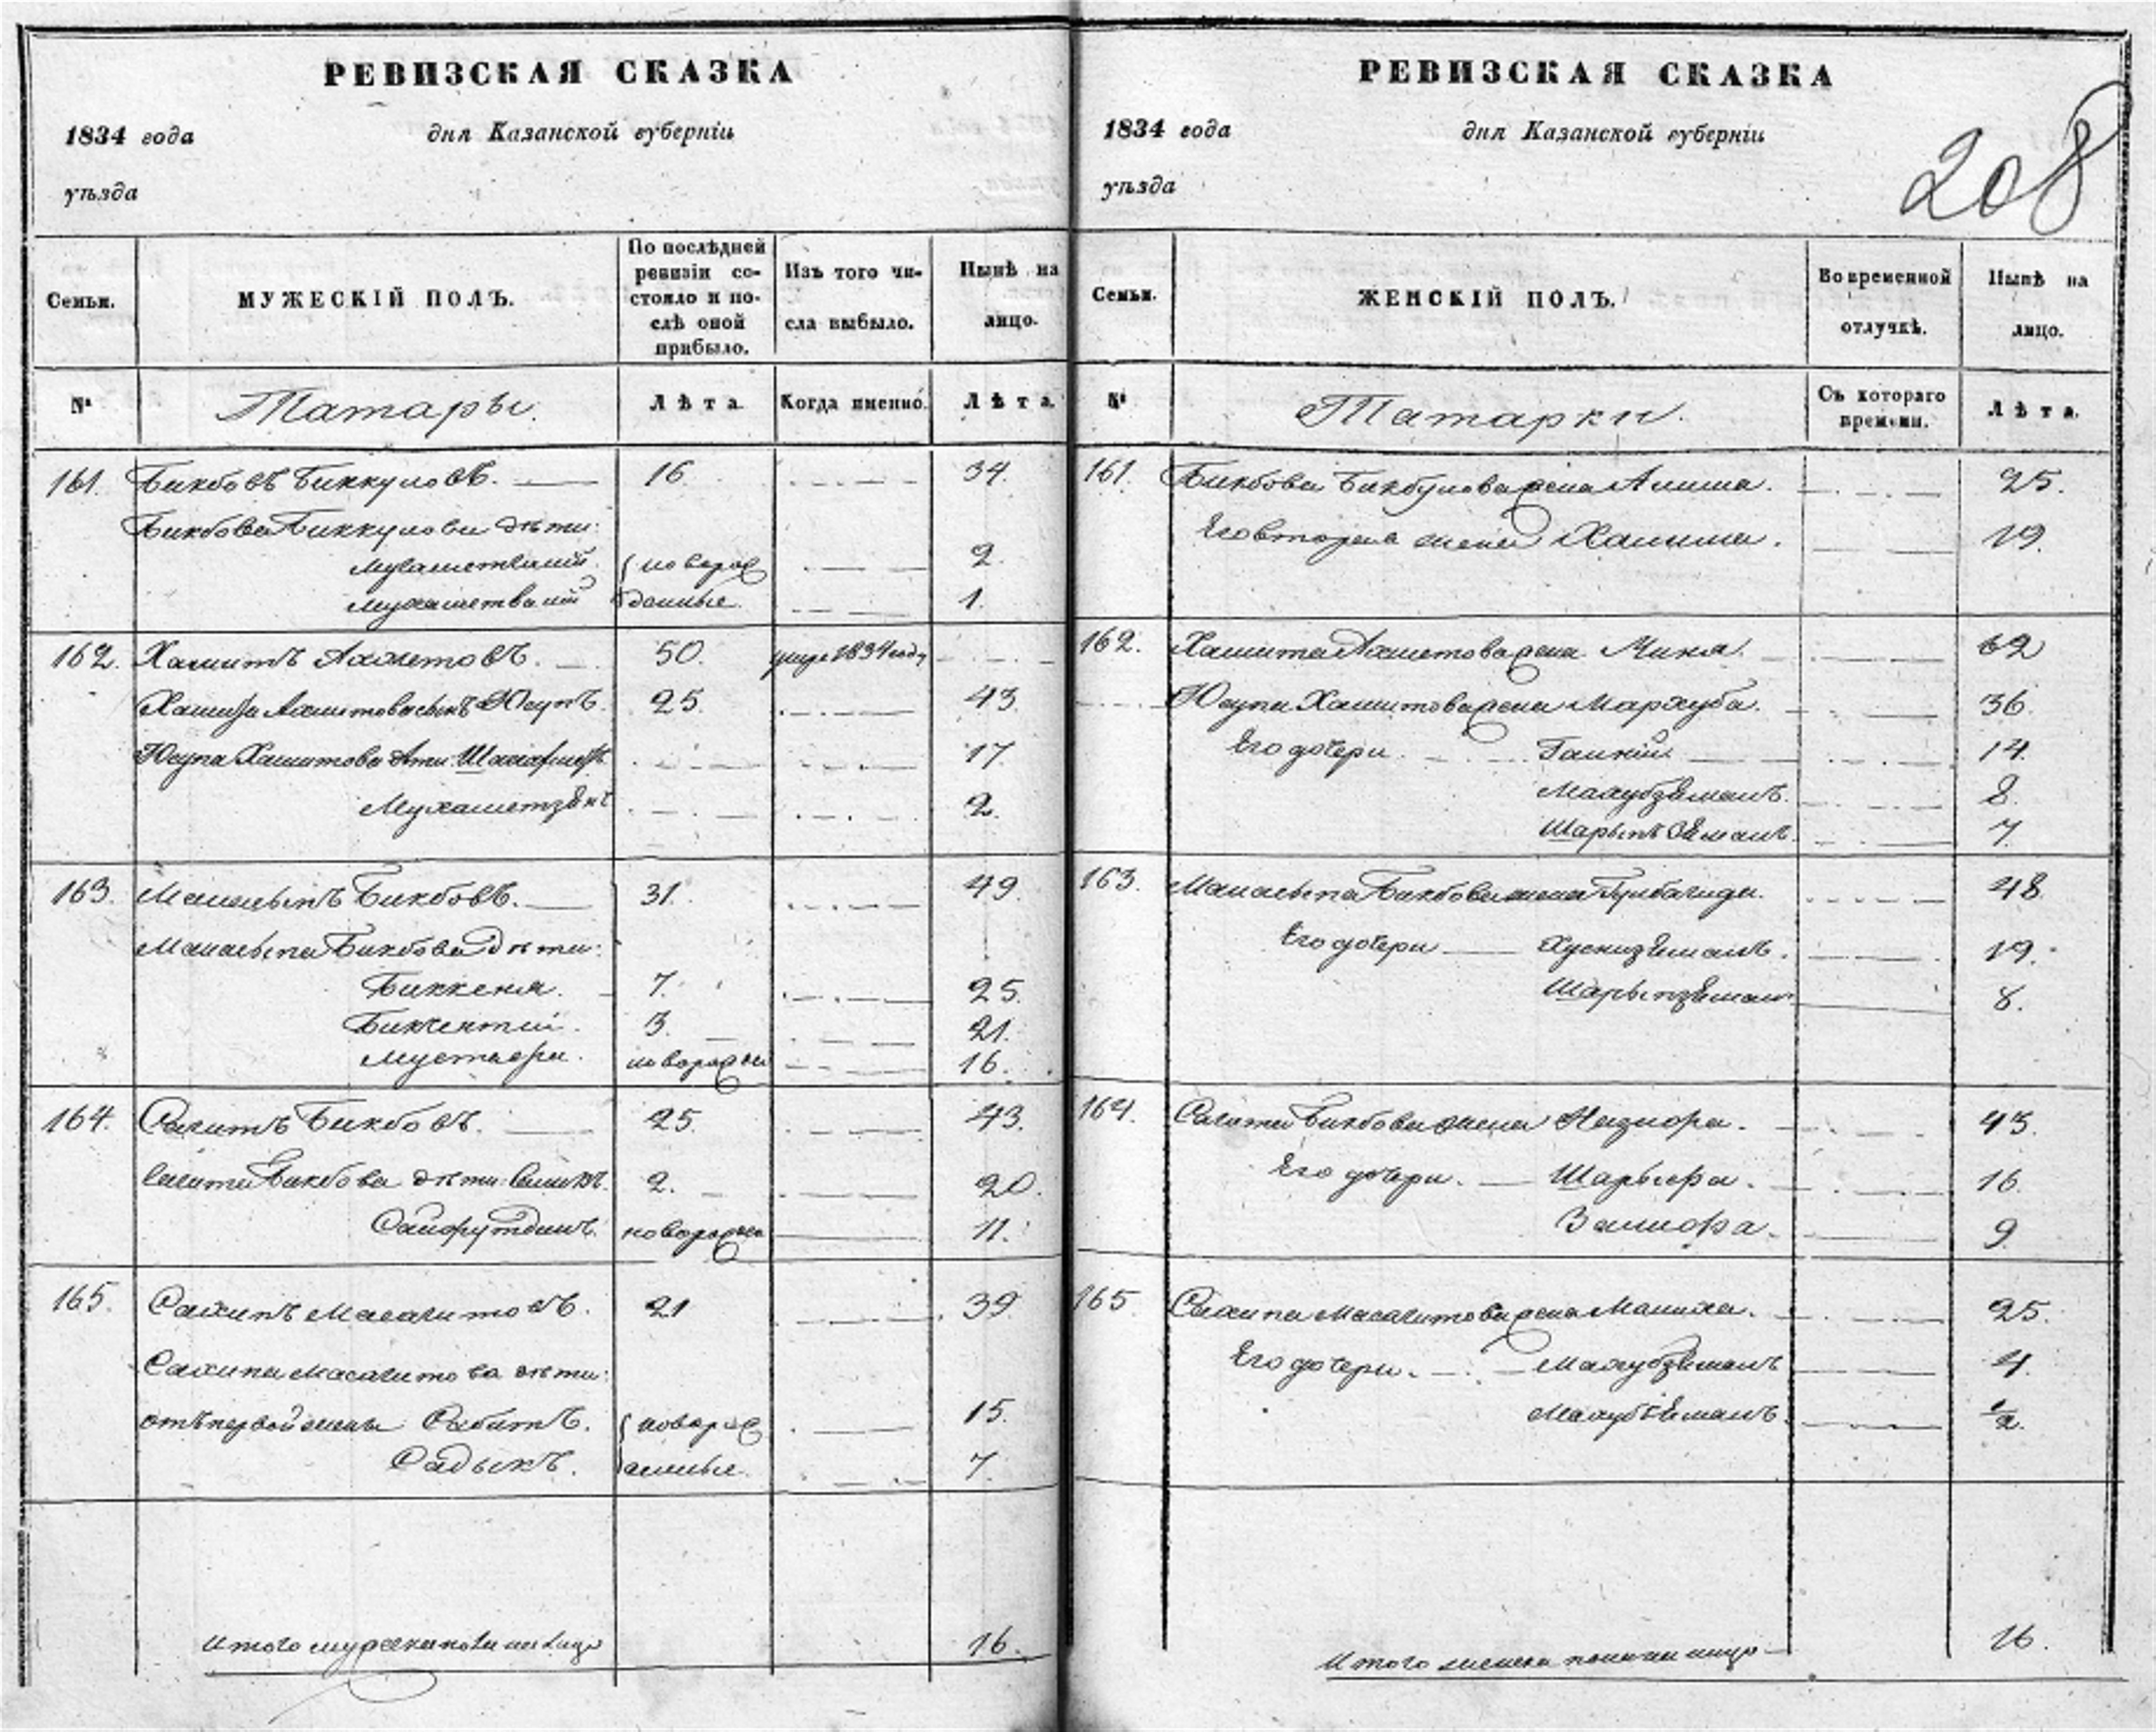 РЕВИЗСКАЯ СКАЗКА
1834 года дня Казанской губерніи
уѣзда
Семьи.
МУЖЕСКІЙ ПОЛЪ.
По послѣдней
ревизіи со-
стояло и по-
слѣ оной
прибыло.
Изъ того чи-
сла выбыло.
Нынѣ на
лицо.
№
Татары.
Лѣта.
Когда именно.
Лѣта.
161. Бикбовъ Биккуловъ. 16 34.
Бикбова Биккулова дѣти:
новорож 2.
Мухаметвалій денные 1.
162. Хамитъ Ахметовъ. 50. 1834 году
Хамита Ахметова сынъ Юсупъ. 25. 43.
Юсупа Хамитова дѣти: 17
Мухаметзянъ 2.
163. Бикбовъ. 31. 49.
Бикбова дѣти:
Биккеня. 7. 25.
Бикчентей. 3. 21.
Мустафа. новорожде 16.
164. Сагитъ Бикбовъ. 25. 43.
Сагита Бикбова дѣти: 2. 20.
Сайфутдинъ. новорожде 11.
165. Сахипъ Масагутовъ. 21 39.
Сахипа Масагутова дѣти:
отъ первой жены Сабитъ. новорож 15.
Садыкъ. денные 7.
Итого мужеска пола на лицо 16.
РЕВИЗСКАЯ СКАЗКА
1834 года дня Казанской губерніи
уѣзда
208
Семьи.
ЖЕНСКІЙ ПОЛЪ.
Во временной
отлучкѣ.
Нынѣ на
лицо.
№
Татарки.
Съ котораго
времени.
Лѣта.
161. Бикбова жена 25.
Его вторая жена Халима. 19.
162. Хамита Ахметова жена 62
Юсупа Хамитова жена Махуба. 36.
Его дочери 14.
Махубземалъ. 8.
Шарыпъземалъ. 7.
163. Бикбова жена 48
Его дочери Хусниземалъ. 19.
Шарыпземал 8.
164. Сагита Бикбова жена 43.
Его дочери. 16.
9
165. Сахипа Масагутова жена Малиха. 25.
Его дочери. Махубземалъ 4.
Махубземалъ. 1/2.
Итого женска пола на лицо 16.